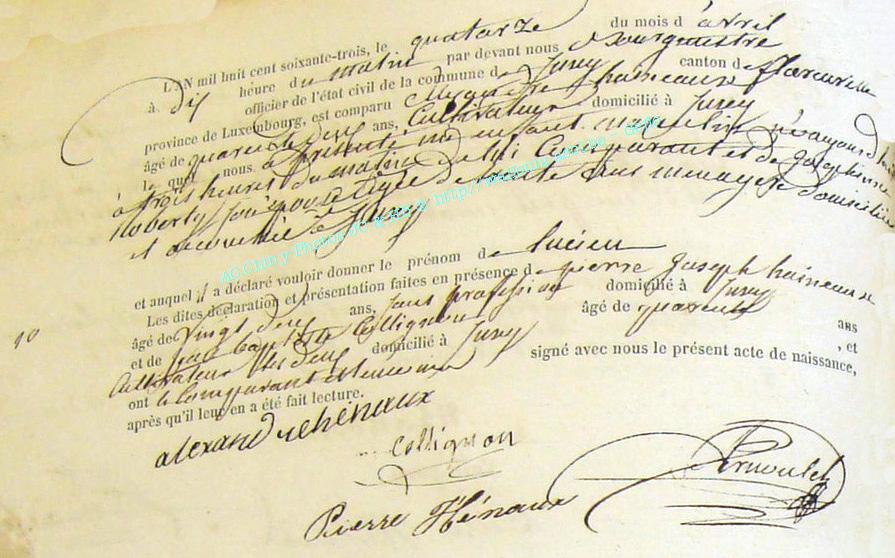 L'AN mil huit cent soixante-trois, le quatorze du mois d'avril
à dix heure du matin par devant nous Bourgmestre
officier de l'état civil de la commune de Jusey canton de
province de Luxembourg, est comparu Alexandre haineaux
âgé de quarente deux ans, Cultivateur domicilié à Jusey
le quel nous a présenté un enfant masculin né aujourd'hui
à trois heures du matin de lui Comparant et de josephine
Roberty son épouse agée de trente ans menagere domiciliée
et accouchée à Jusey
et auquel il a déclaré vouloir donner le prénom de lucien
Les dites déclaration et présentation faites en présence de pierre joseph haineaux
âgé de vingt deux ans, sans profession domicilié à Jusey
et de jean baptiste Collignon âgé de quarente ans
Cultivateur les deux domicilié à Jusey , et
ont le Comparant et temoins signé avec nous le présent acte de naissance,
après qu'il leur en a été fait lecture.
10
alexandre hénaux
Collignon
Pierre Hénaux